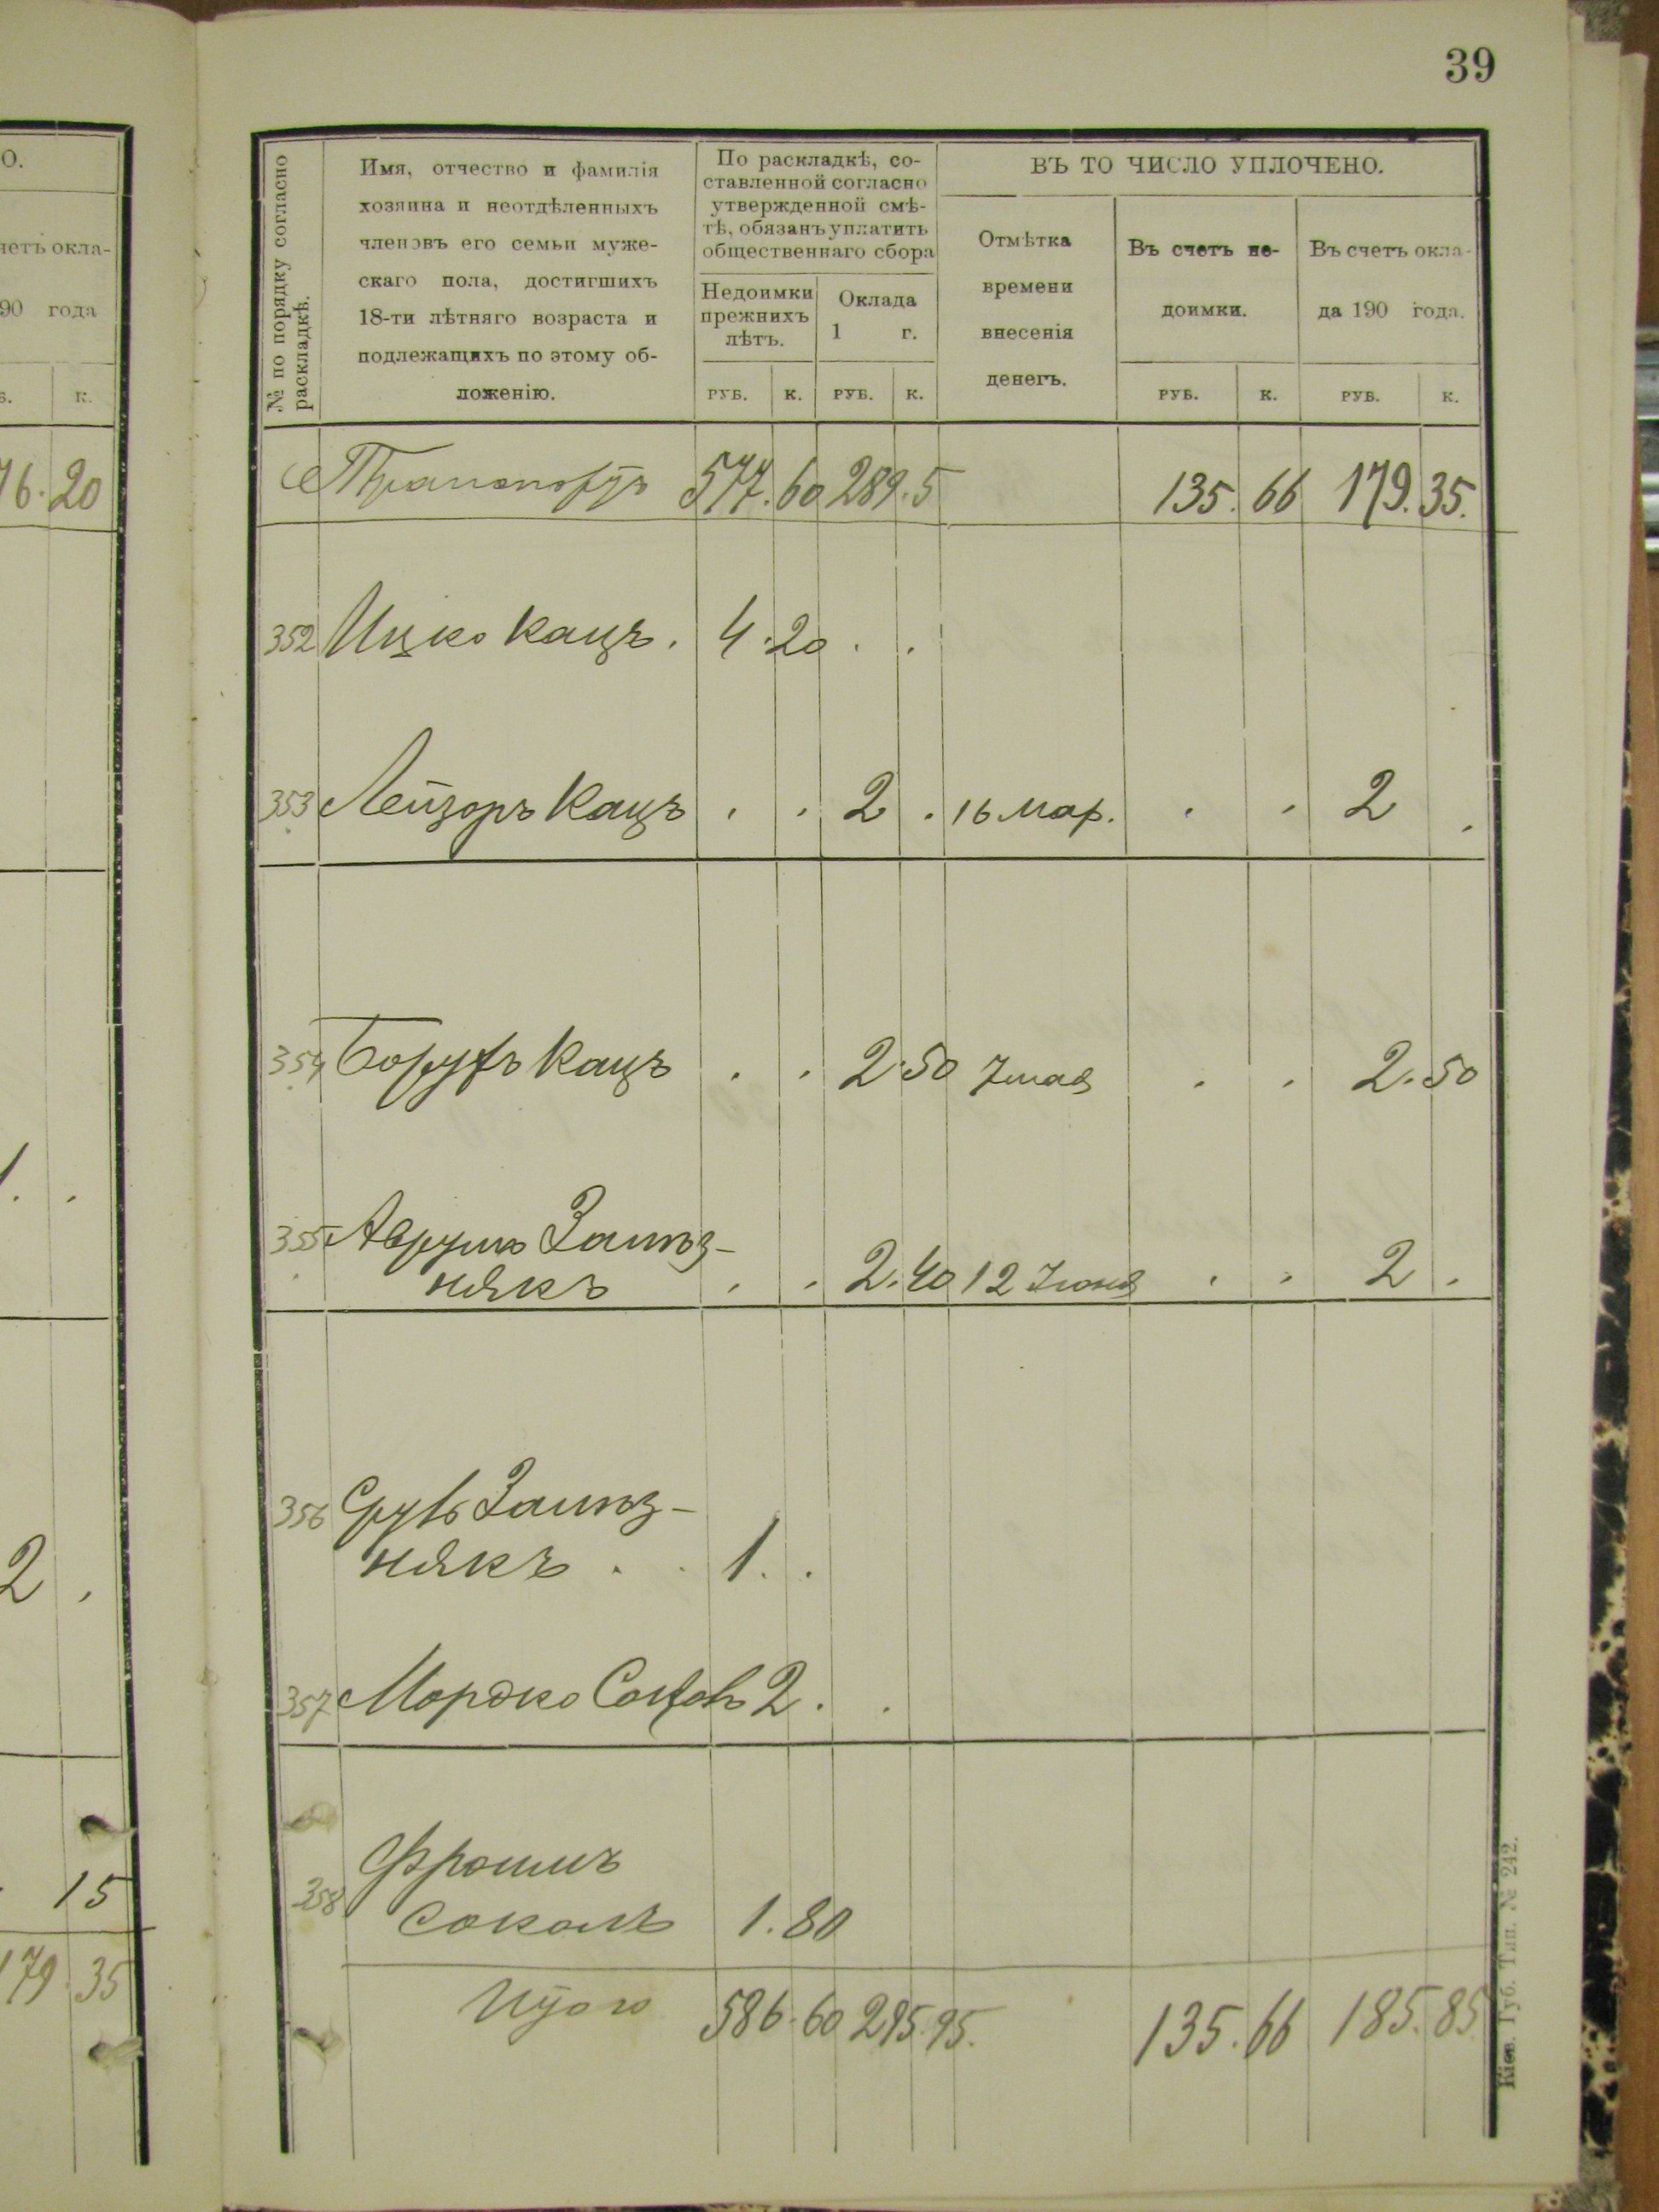 39
О.
четъ окла-
90 года
Б. К.
76. 20
1. .
2 .
15
179. 35
№ по порядку согласно
раскладкѣ.
Имя, отчество и фамилія
хозяина и неотдѣленныхъ
членовъ его семьи муже-
скаго пола, достигшихъ
18-ти лѣтняго возраста и
подлежащихъ по этому об-
ложенію.
По раскладкѣ, со-
ставленной согласно
утвержденной смѣ-
тѣ, обязанъ уплатить
общественнаго сбора
Недоимки
прежнихъ
лѣтъ.
Оклада
1 г.
РУБ. К. РУБ. К.
ВЪ ТО ЧИСЛО УПЛОЧЕНО.
Отмѣтка
времени
внесенія
денегъ.
Въ счетъ не-
доимки.
РУБ. К.
Въ счетъ окла-
да 190 года.
РУБ. К.
Транспортъ 577. 60 289. 5 135. 66 179. 35.
352 Ицко Кацъ. 4. 20 . .
353 Лейзоръ Кацъ . . 2 . 16 мар. . . 2 .
354 Борухъ Кацъ . . 2 50 7 мая . . 2. 50
355 Аврумъ Зализ-
някъ . . 2. 40 12 Іюня . . 2 .
356 Сруль Зализ-
някъ . . 1. .
357 Мордко 2. .
358 Фроимъ
Соколъ 1. 80
Итого 586. 60 295. 95. 135. 66 185. 85
Кіев. Губ. Тип. № 242.